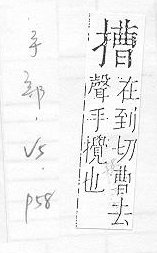 在到切曹去
聲手攪也
手部·V5·p58